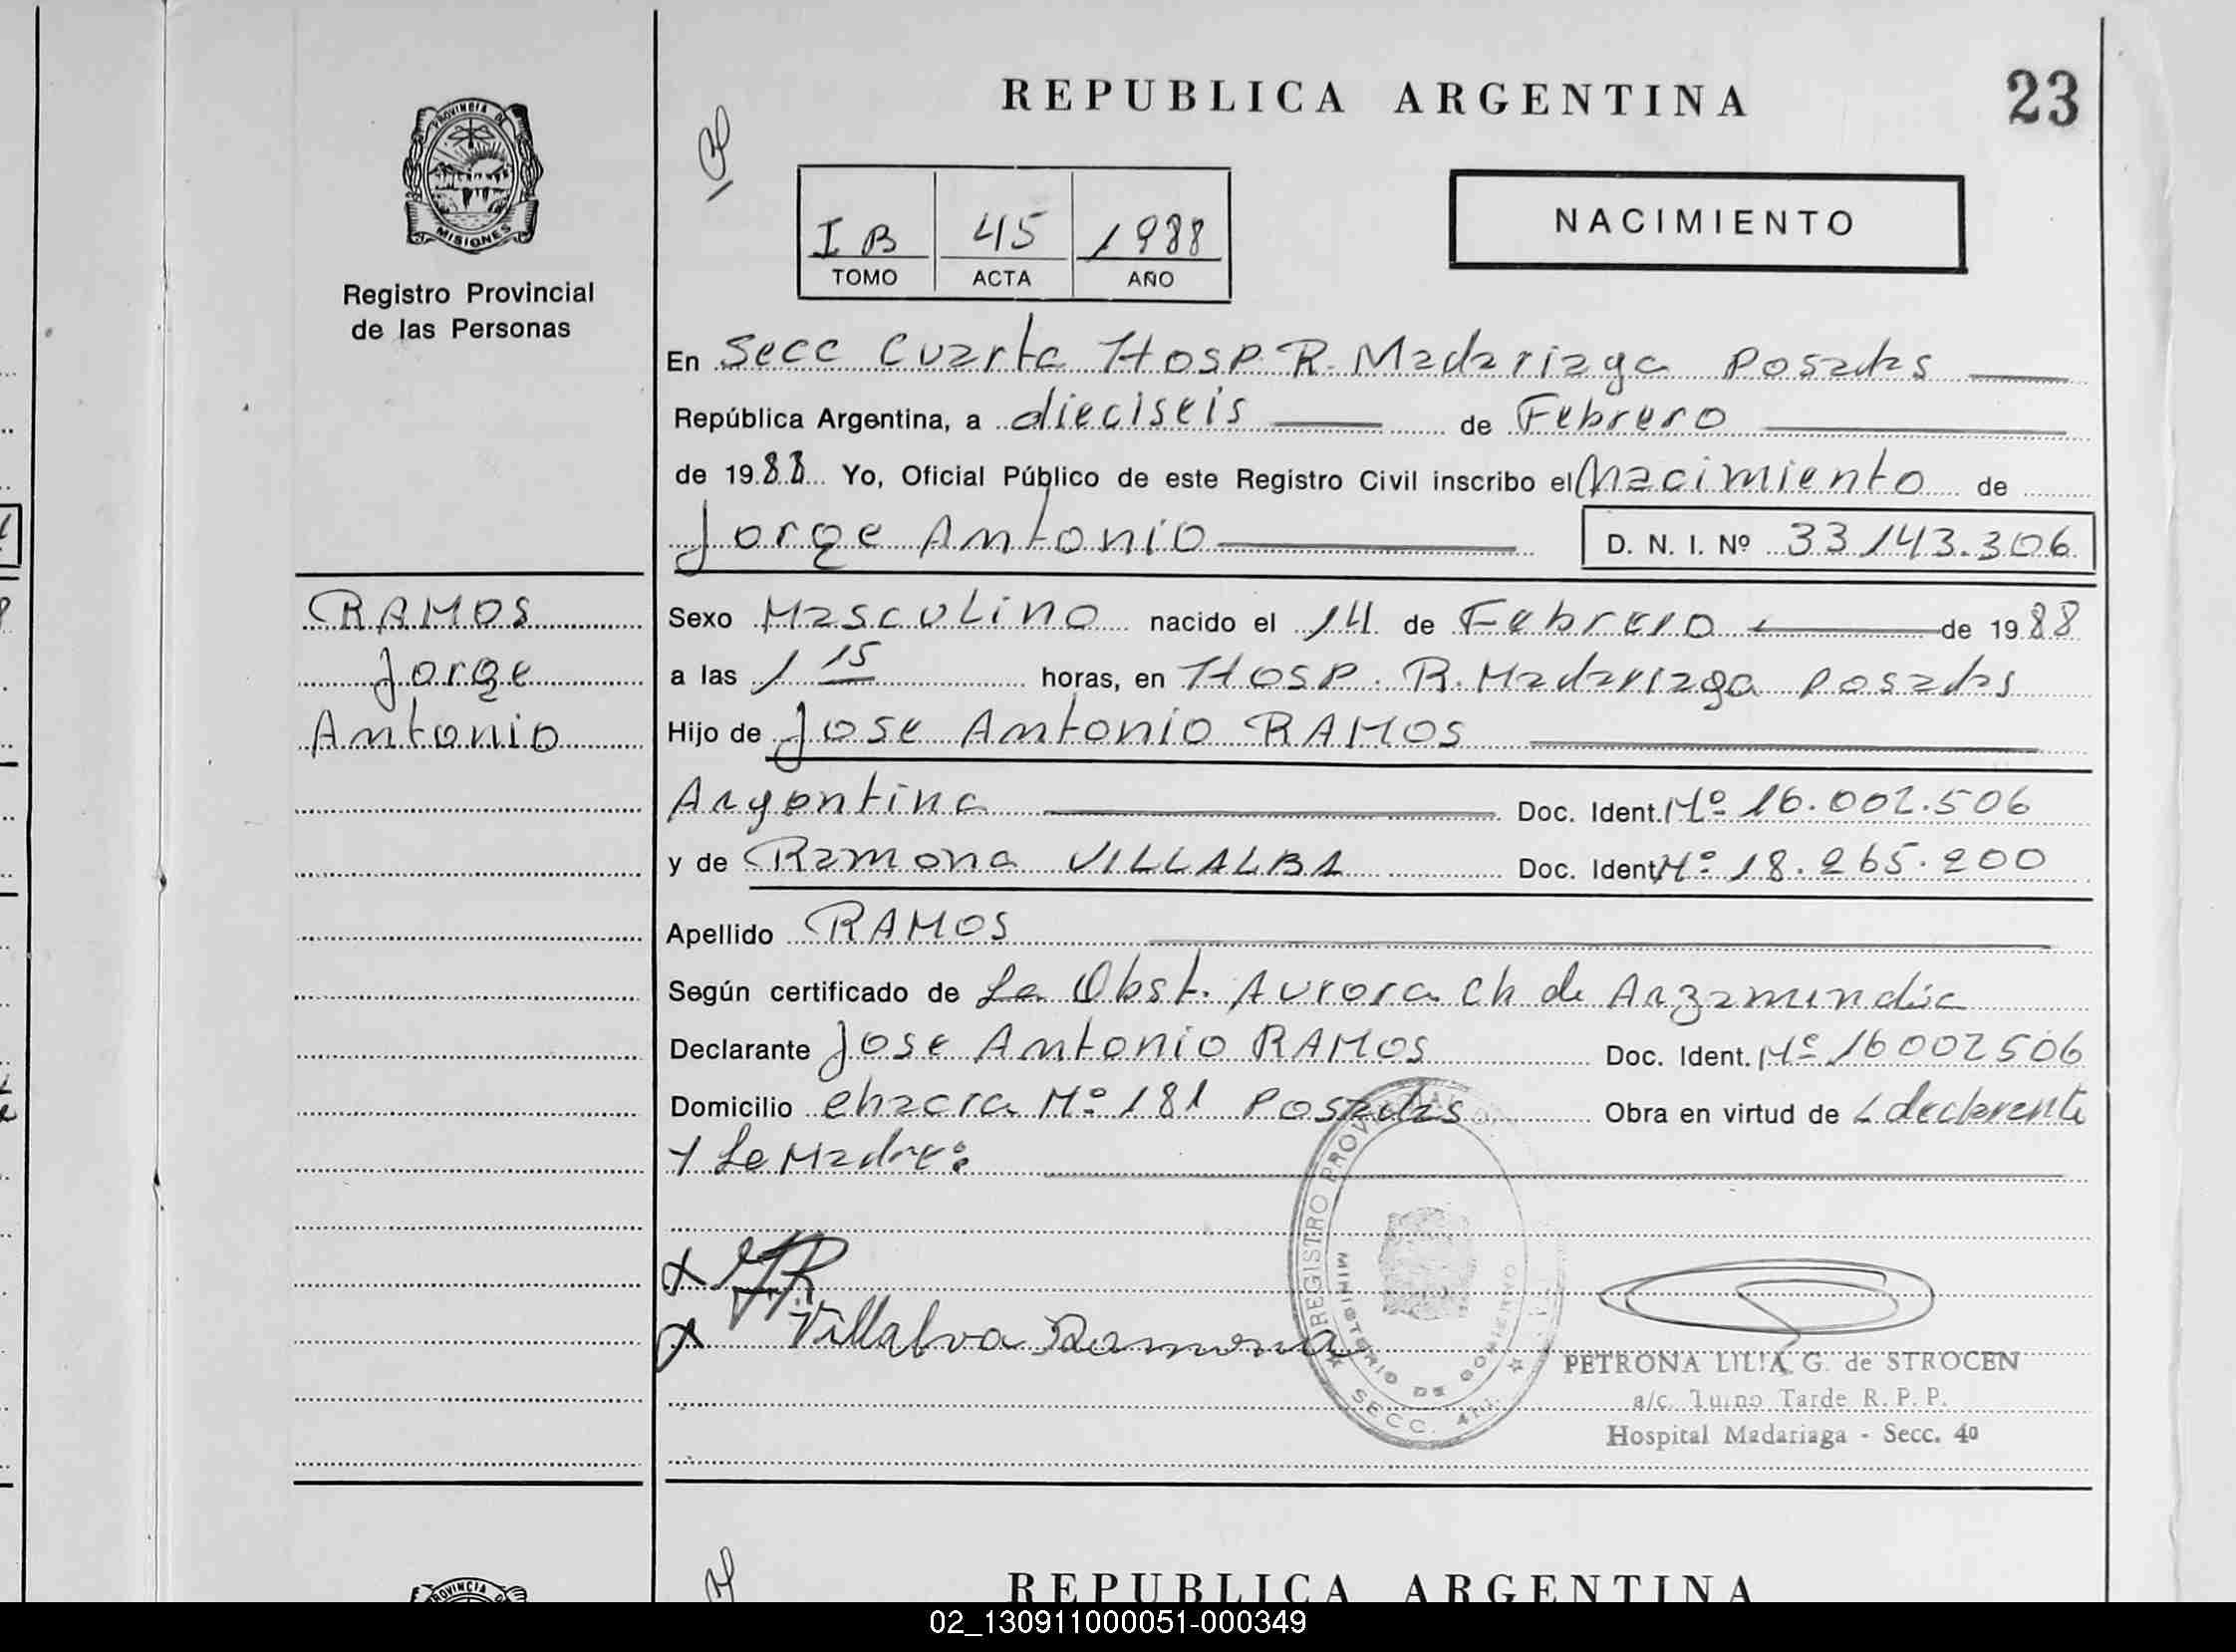 REPUBLICA ARGENTINA
23
PROVINCIA DE
MISIONES
Registro Provincial
de las Personas
I B 45 1988
TOMO ACTA AÑO
NACIMIENTO
En Secc Cuarta Hosp. R. Madariaga Posadas
República Argentina, a dieciseis de Febrero
de 1988 Yo, Oficial Público de este Registro Civil inscribo el Nacimiento de
Jorge Antonio D. N. I. Nº 33143.306
RAMOS
Jorge
Antonio
Sexo Masculino nacido el 14 de Febrero de 1988
a las 1 15 horas, en Hosp. R. Madariaga Posadas
Hijo de Jose Antonio RAMOS
Argentina Doc. Ident. Nº 16.002.506
y de Ramona VILLALBA Doc. Ident. Nº 18.265.200
Apellido RAMOS
Según certificado de La Obst. Aurora Ch de Arzamendia
Declarante Jose Antonio RAMOS Doc. Ident. Nº 16002506
Domicilio chacra Nº 181 Posadas Obra en virtud de L declarente
Y La Madre:
X
X Villalva Ramona
REGISTRO PROVINCIAL DE
MINISTERIO DE GOBIERNO
SECC. 4ta.
PETRONA LILIA G. de STROCEN
a/c. Turno Tarde R. P. P.
Hospital Madariaga - Secc. 4ª
PROVINCIA
REPUBLICA ARGENTINA
02_130911000051-000349